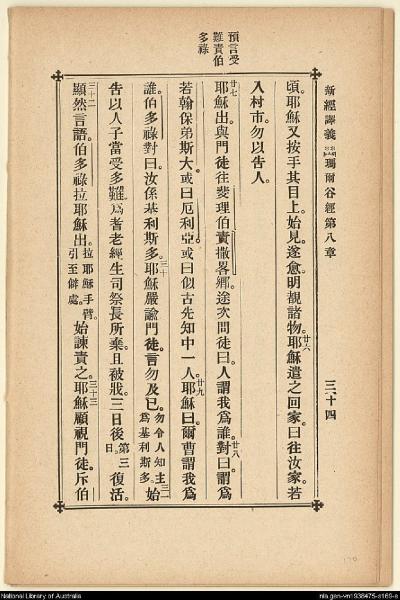 預言受
難責伯
多祿
新經譯義 瑪爾谷經第八章 三十四
頃。耶穌又按手其目上。始見。遂愈。明覩諸物。廿六耶穌遣之回家。曰往汝家。若
入村市。勿以告人。
廿七耶穌出。與門徒往斐理伯責撒畧鄉。途次問徒曰。人謂我爲誰。廿八對曰。謂爲
若翰保弟斯大。或曰厄利亞。或曰似古先知中一人。廿九耶穌曰。爾曹謂我爲
誰。伯多祿對曰。汝係基利斯多。三十耶穌嚴諭門徒。言勿及己。勿令人知主爲基利斯多。三一始
告以人子當受多難。爲耆老經生司祭長所棄。且被戕。三日後第三日。復活。
三十二顯然言語。伯多祿拉耶穌出。拉耶穌手臂。引至僻處。始諫責之。三十三耶穌顧視門徒。斥伯
National Library of Australia
nla.gen-vn1938475-s169-e